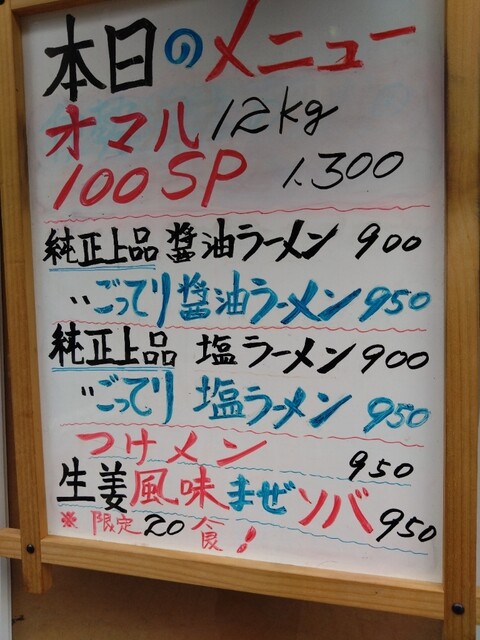 本日のメニュー
オマル 12kg
100SP 1.300
純正上品 醤油ラーメン 900
〃ごってり醤油ラーメン 950
純正上品 塩ラーメン 900
〃ごってり 塩ラーメン 950
つけメン 950
生姜風味まぜソバ 950
※限定20食!